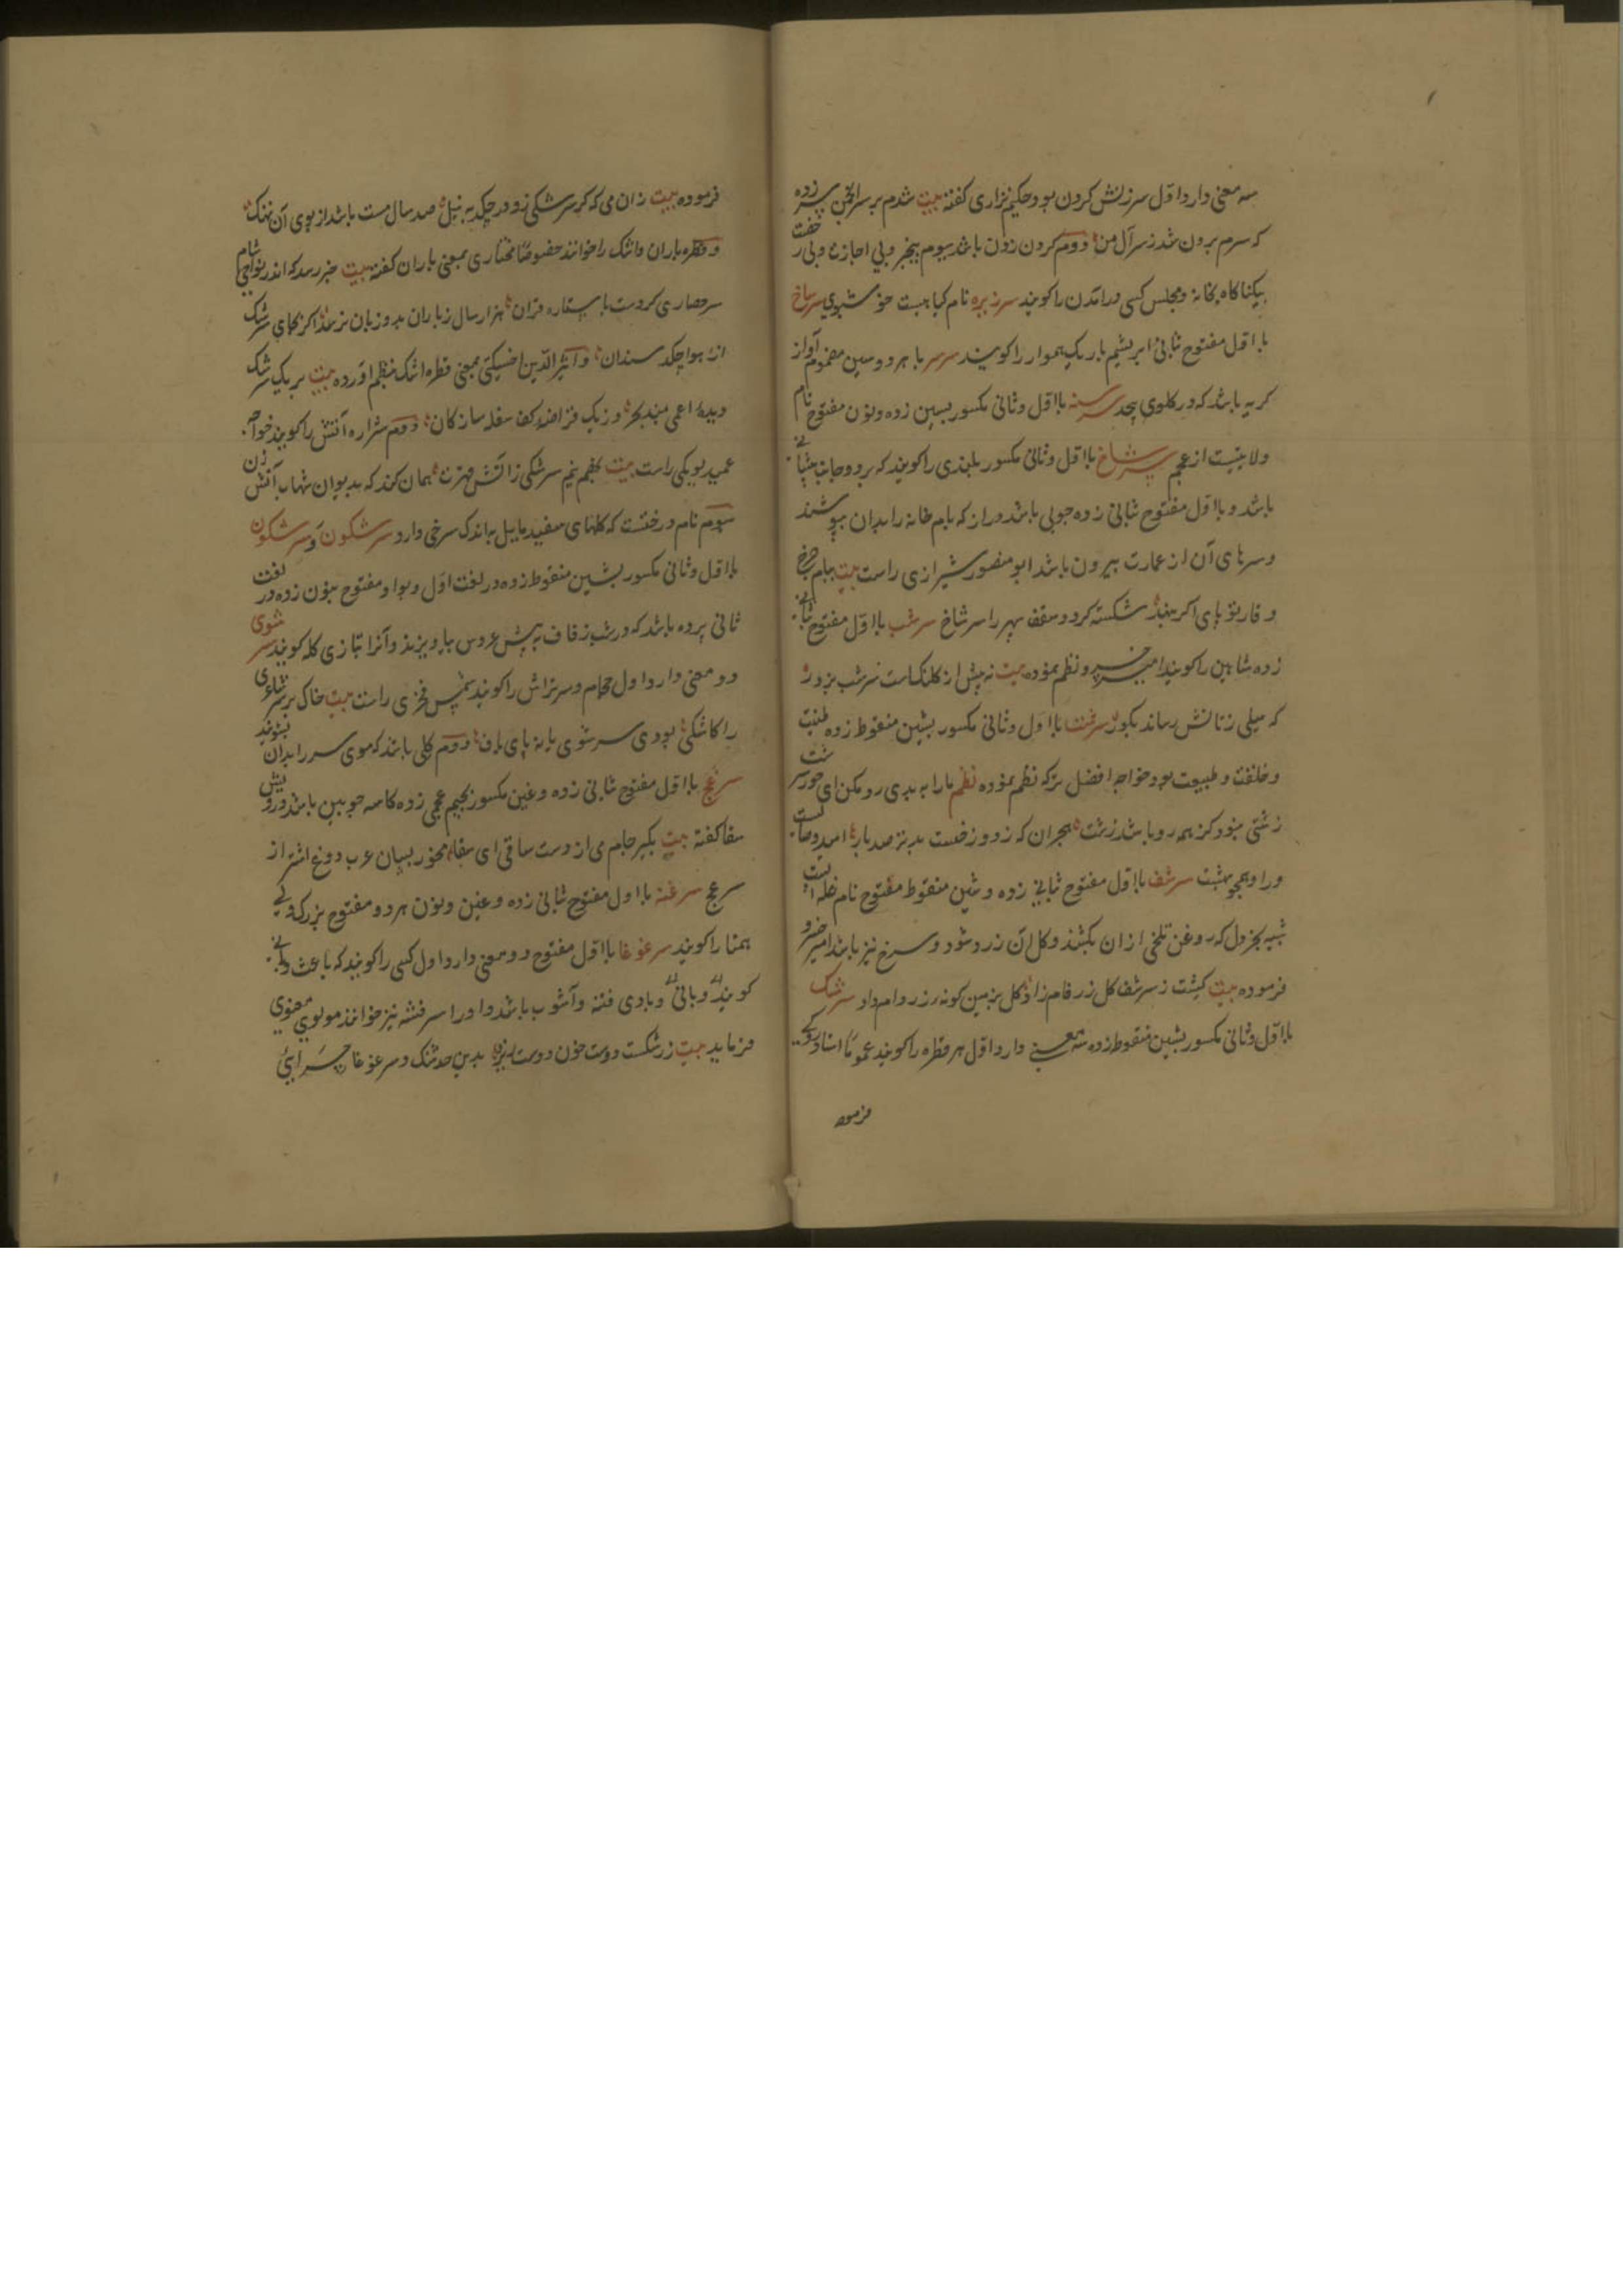 سه معنی دارد اول سرزنش کردن بود حکیم نزاری گفته بیت شدم بر سر انجمن سرزده
که سرم برون شد ز سر آل من دوم گردن زدن باشد سیوم بیخبر و بی اجازت و بی رخصت
بیکناکاه بخانه و مجلس کسی درآمدن را کویند سرزیره نام کیاهیست خوشبوی سرساخ
با اول مفتوح ثانی ابریشم باریک هموار را کویند سرسر با هر دو سین مضموم آواز
کربه باشد که در کلوی پیچد سرسنه با اول و ثانی مکسور بسین زده و نون مفتوح نام
ولایتیست از عجم سرشاخ با اول و ثانی مکسور بلندی را کویند که بر دو جانب پیشانی
باشد و با اول مفتوح ثبانی زده چوبی باشد دراز که بام خانه را بدان بپوشند
و سرهای آن از عمارت بیرون باشد ابو منصور شیرازی راست بیت ببام چرخ
وقار تو پای اکر بنهد شکسته کردد سقف سپهر را سرشاخ سرشب با اول مفتوح ثبانی
زده شاهین را کویند امیر خسرو نظم نموده بیت نه پیش از کلنکست سرشب بزور
که سیلی زنانش رساند بکور سرشت با اول و ثانی مکسور بشین منقوط زده طینت
و خلقت و طبیعت بود خواجه افضل ترکه نظم نموده نظم ما را به بدی رو مکن ای حور سرشت
زشتی نبود کز همه رو باشد زشت هجران که ز دوزخست بدتر صد بار امید وصال
ورا و همچو بهشت سرشف با اول مفتوح ثبانی زده و شین منقوط مفتوح نام غله ایست
شبیه بخردل که روغن تلخی از آن بکشند و کل آن زرد شود و سرخ نیز باشد امیر خسرو
فرموده بیت کشت ز سرشف کل زر فام زاد کل بزمین کونه زر وام داد سرشک
با اول و ثانی مکسور بشین منقوط زده سه معنی دارد اول هر قطره را کویند عموما استاد رودکی
فرموده
فرموده بیت زان می که کر سرشکی زو در چکد به نیل صد سال مست باشد از بوی آن نهنک
و قطره باران و اشک را خوانند خصوصا مختاری بمعنی باران کفته بیت خبر رسد که اندر نواحی شام
سر حصاری کردست با ستاره قران هزار سال ز باران بدو زیان نرسد اکر بجای سرشک
از هوا چکد سندان و اثیر الدین اخسیکتی بمعنی قطره اشک منظم آورده بیت بر یک سرشک
دیدهٔ اعمی نبند بحر و ز یک قراضه کف سفله ساز کان دوم شراره آتش را کویند خواجه
عمید لویکی راست بیت کفم نیم سرشکی ز آتش قهرت همان کند که بدیوان شهاب آتش زن
سیوم نام درختست که کلهای سفید مایل به اندک سرخی دارد سرشکون و سرشکون
با اول و ثانی مکسور بشین منقوط زده در لغت اول و بواو مفتوح بنون زده در لغت
ثانی پرده باشد که در شب زفاف به پیش عروس بیاویزند و آنرا بتازی کله کویند سرشوی
دو معنی دارد اول حجام و سرتراش را کویند شمس فخری راست بیت خاک بر سر شاعری
را کاشکی بودی سرشوی یا نه پای باف دوم کلی باشد که موی سر را بدان بشویند
سرغج با اول مفتوح ثبانی زده و غین مکسور بجیم عجمی زده کاسه چوبین باشد درویش
سقا کفته بیت بکیر جام می از دست ساقی ای سقا مخور بسان عرب دوغ اشتر از
سرغج سرغنه با اول مفتوح ثبانی زده و غین و نون هر دو مفتوح بزرک و بی
همتا را کویند سرغوغا با اول مفتوح دو معنی دارد اول کسی را کویند که باعث و بانی
کویند و بانی و بادی فتنه و آشوب باشد و او را سر فتنه نیز خوانند مولوی معنوی
فرماید بیت ز رشکست دوست خون دوست ریزد بدین حد شنک و سرغوغا چرایی